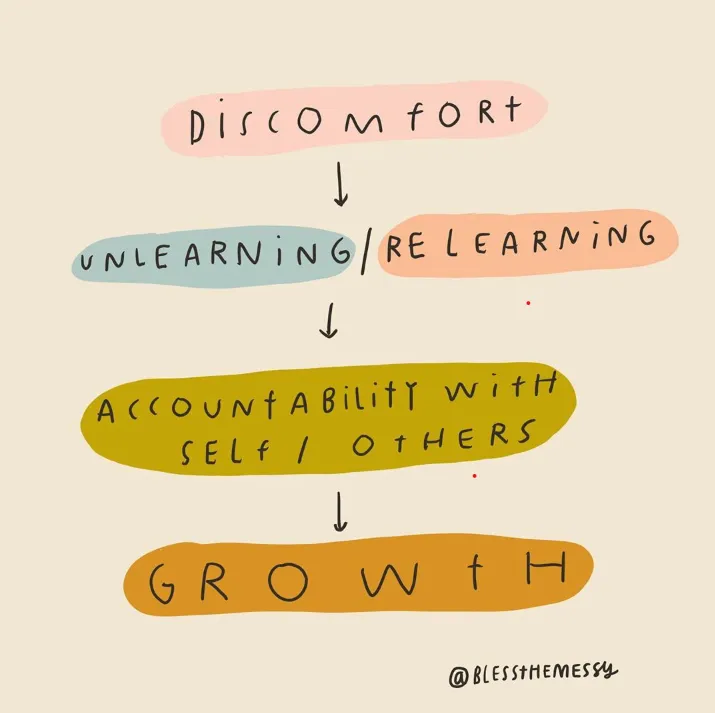 DISCOMFORT
UNLEARNING/RELEARNING
ACCOUNTABILITY WITH
SELF/ OTHERS
GROWTH
@BLESSTHEMESSY